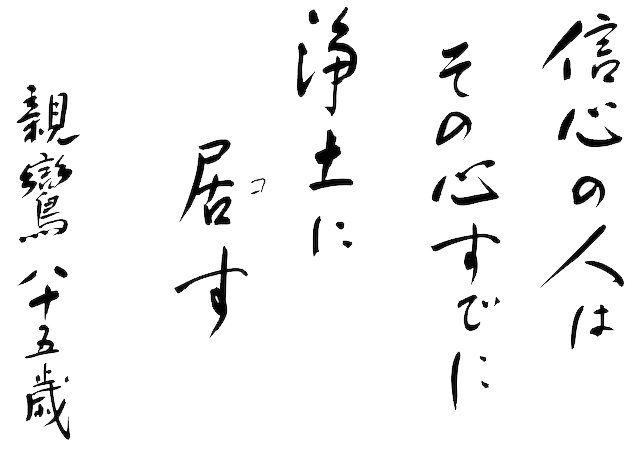 信心の人は
その心すでに
浄土に
居す
コ
親鸞 八十五歳